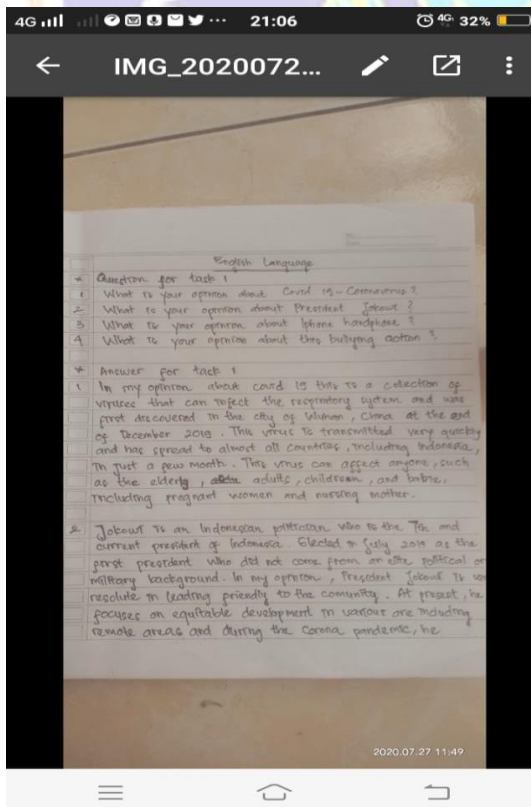 4G 21:06 4G 32%
IMG_2020072...
English Language
* Question for task 1
1 What is your opinion about Covid 19 - Coronavirus ?
2 What is your opinion about President Jokowi ?
3 What is your opinion about Iphone handphone ?
4 What is your opinion about this bullying action ?
* Answer for task 1
1 In my opinion about covid 19 this is a colection of
viruses that can infect the respiratory system and was
first discovered in the city of Wuhan, China at the end
of December 2019. This virus is transmitted very quickly
and has spread to almost all countries, including Indonesia,
in just a few month. This virus can affect anyone, such
as the elderly, adults, children, and babies,
including pregnant women and nursing mother.
2 Jokowi is an Indonesian politician who is the 7th and
current president of Indonesia. Elected in July 2014 as the
first president who did not come from an elite political or
military background. In my opinion, President Jokowi is
resolute in leading friendly to the comunity. At present, he
focuses on equitable development in various are including
remote areas and during the Corona pandemic, he
2020.07.27 11:49